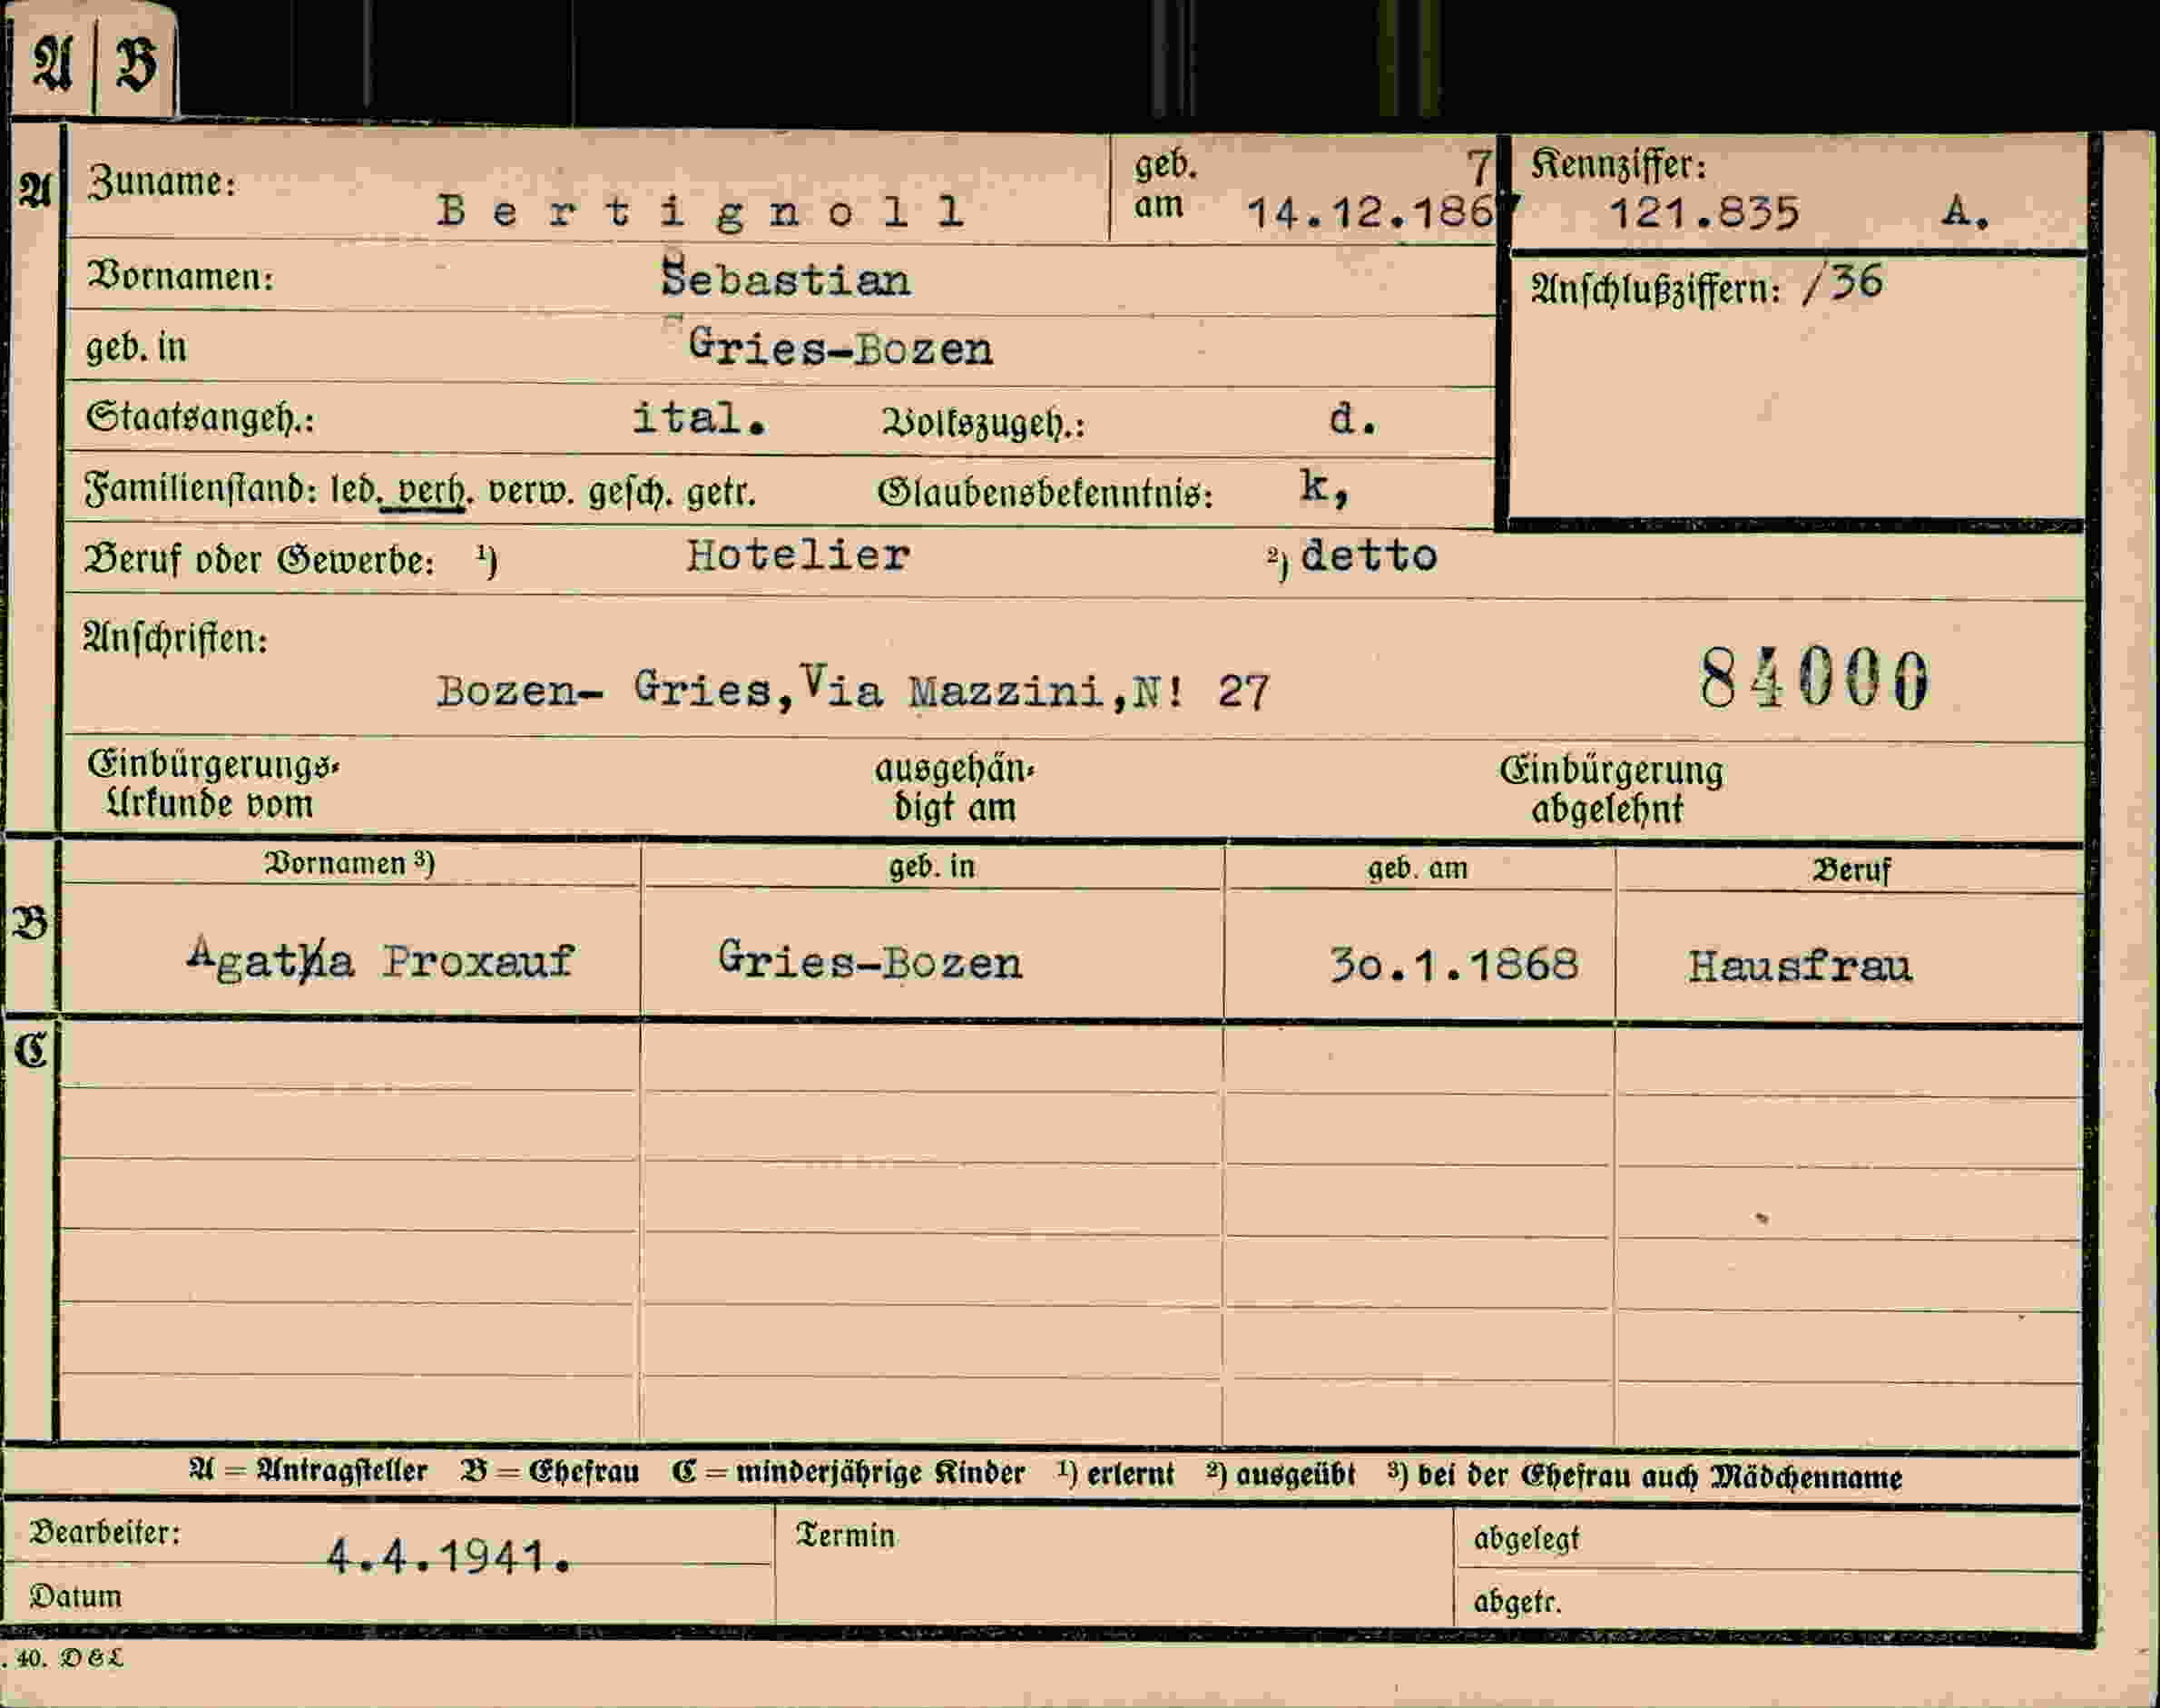 A B
A Zuname: Bertignoll geb. am 14.12.1867 7 Kennziffer: 121.835 A.
Vornamen: Sebastian Anschlußziffern: /36
geb. in Gries-Bozen
Staatsangeh.: ital. Volkszugeh.: d.
Familienstand: led. verh. verw. gesch. getr. Glaubensbekenntnis: k,
Beruf oder Gewerbe: ¹) Hotelier ²) detto
Anschriften:
Bozen- Gries,Via Mazzini,N! 27 84000
Einbürgerungs- ausgehän- Einbürgerung
Urkunde vom digt am abgelehnt
Vornamen ³) geb. in geb. am Beruf
B Agatha Proxauf Gries-Bozen 3o.1.1868 Hausfrau
C
A = Antragsteller B = Ehefrau C = minderjährige Kinder ¹) erlernt ²) ausgeübt ³) bei der Ehefrau auch Mädchenname
Bearbeiter: 4.4.1941. Termin abgelegt
Datum abgetr.
. 40. D & L